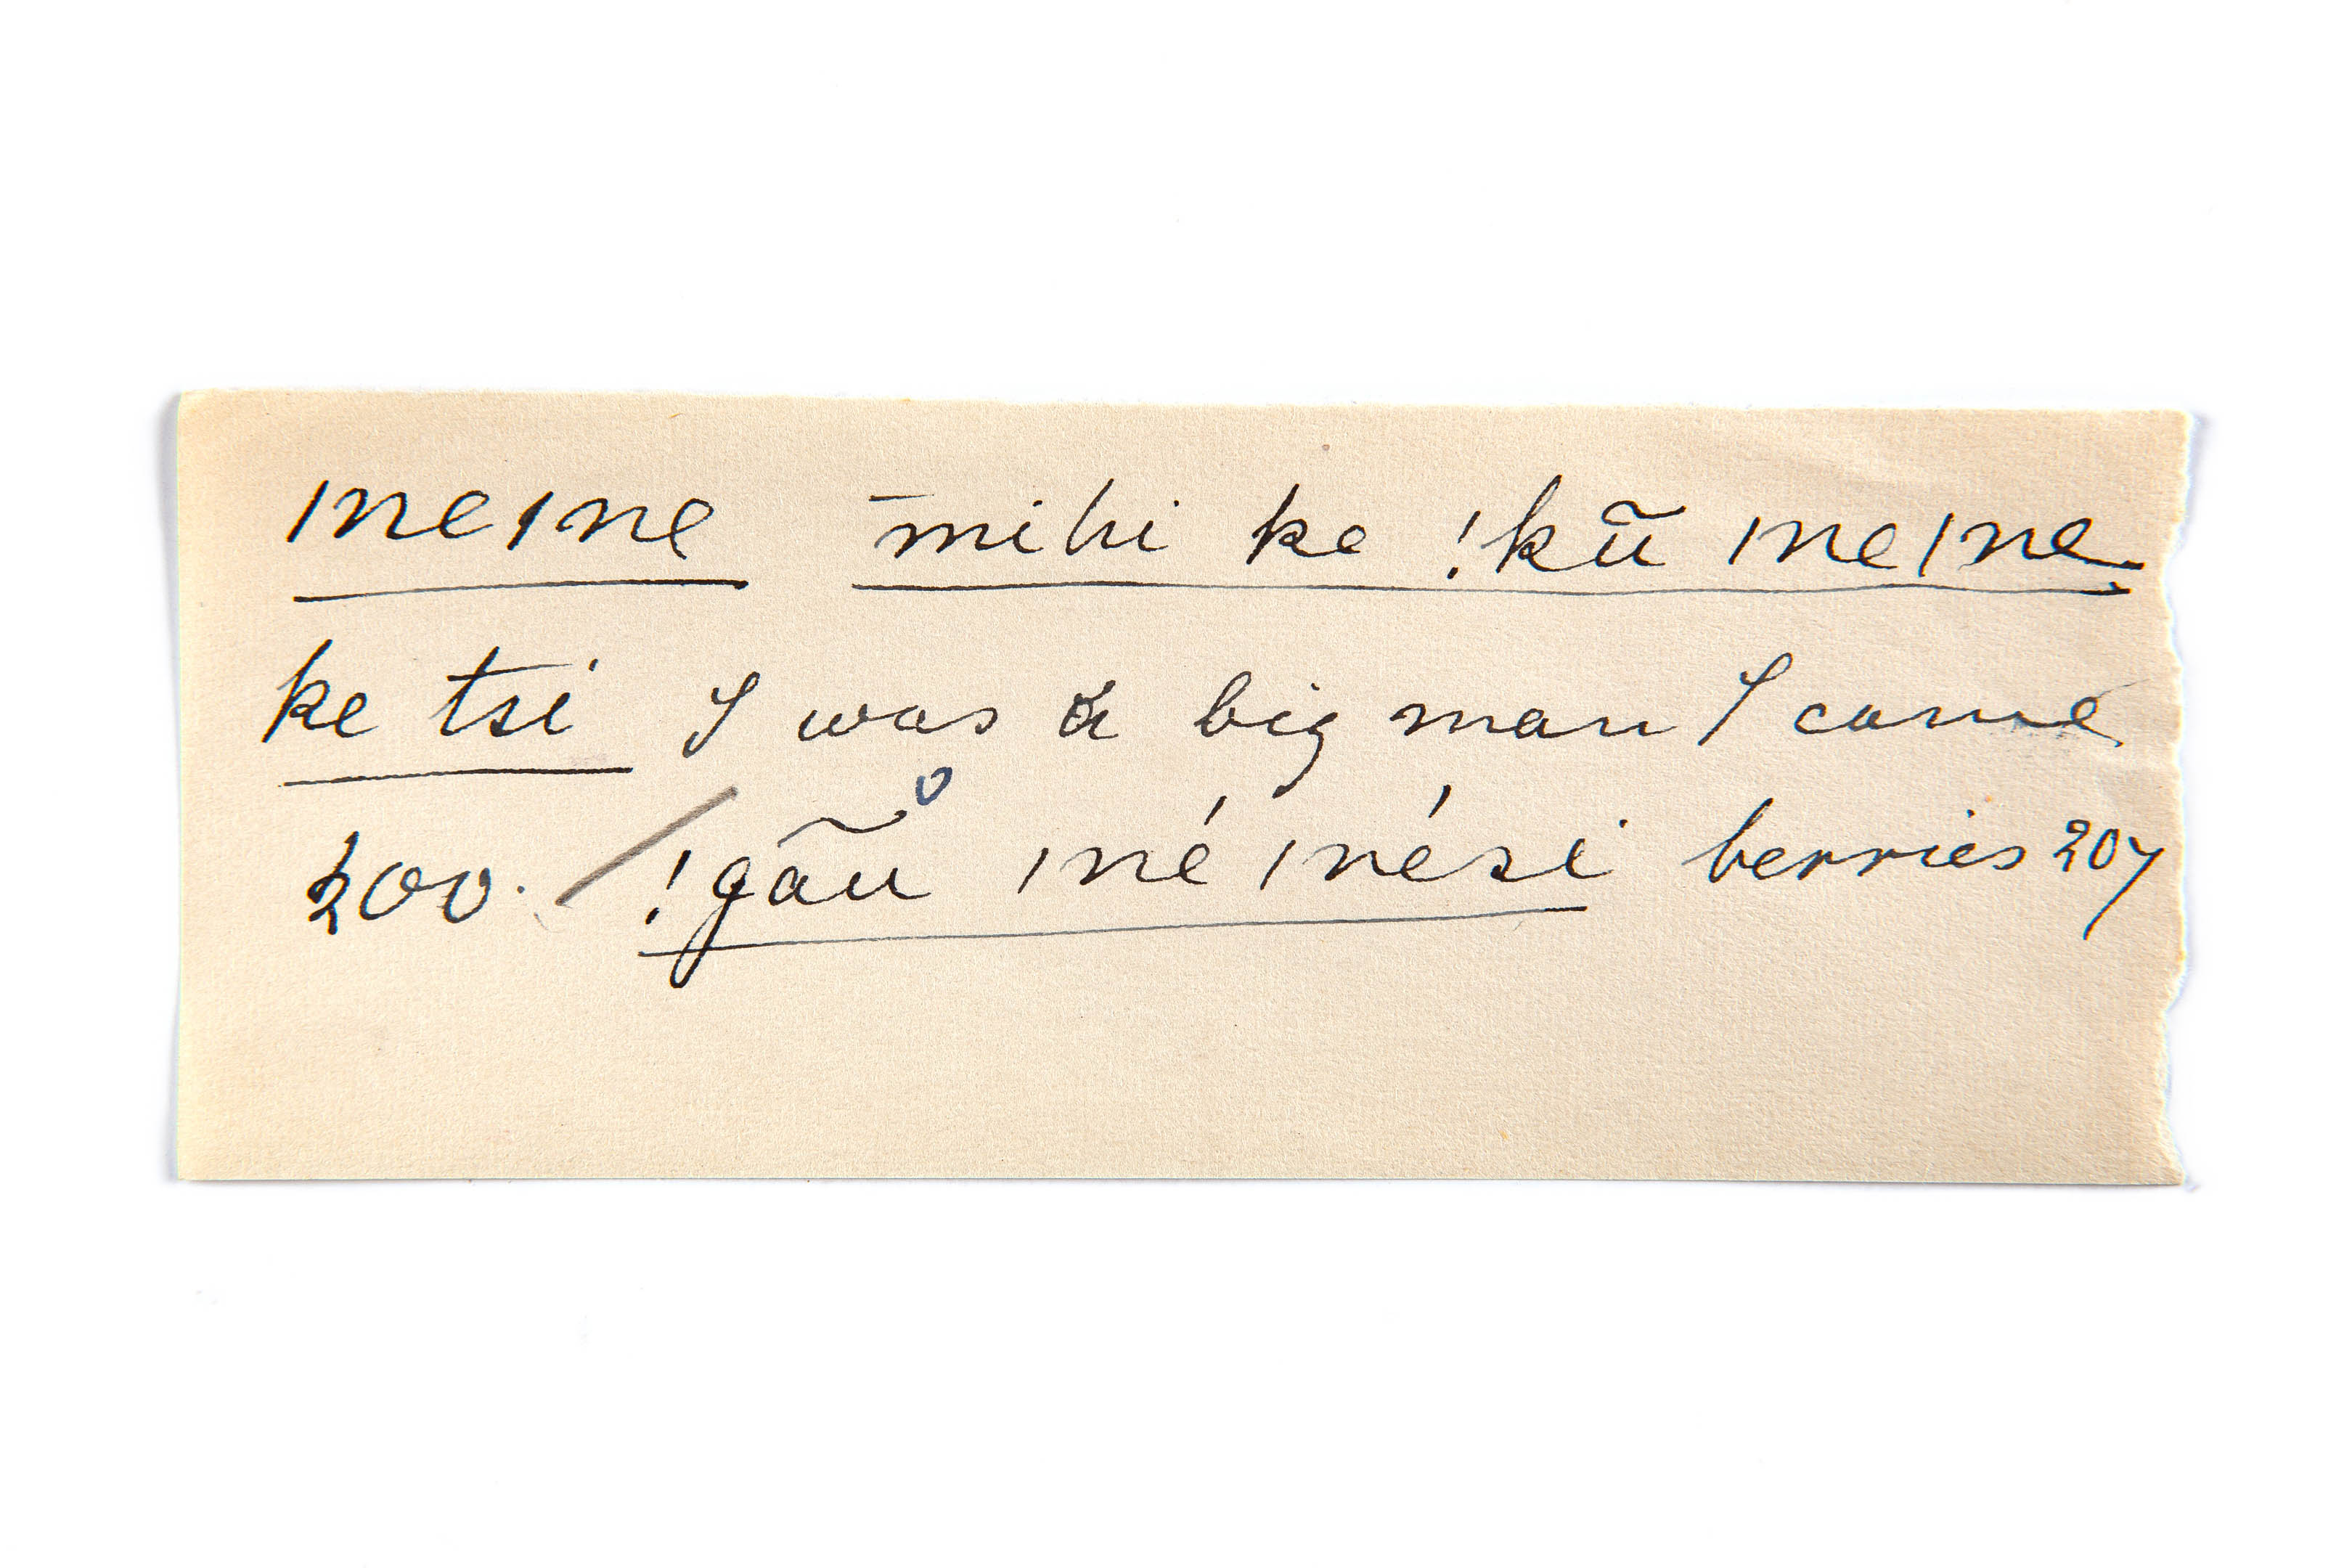 ǀneǀne  m̄ihi ke !kũ ǀneǀne
ke tsi I was a big man I come
200. / !gãũ ǀnéǀnési berries 207